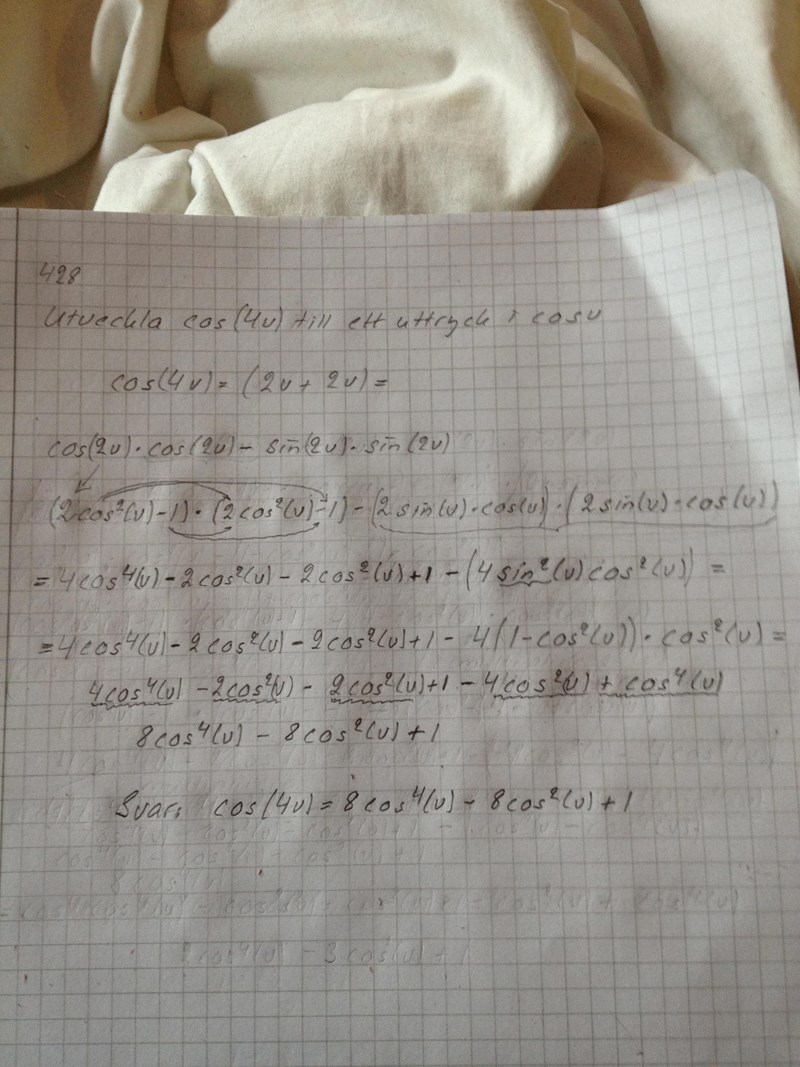 428
Utveckla cos(4v) till ett uttryck i cosv
cos(4v) = (2v + 2v) =
cos(2v)·cos(2v) - sin(2v)·sin(2v)
(2cos²(v)-1)·(2cos²(v)-1) - (2sin(v)·cos(v))·(2sin(v)·cos(v))
= 4cos⁴(v) - 2cos²(v) - 2cos²(v) + 1 - (4sin²(v)cos²(v)) =
= 4cos⁴(v) - 2cos²(v) - 2cos²(v) + 1 - 4(1-cos²(v))·cos²(v) =
4cos⁴(v) - 2cos²(v) - 2cos²(v) + 1 - 4cos²(v) + cos⁴(v)
8cos⁴(v) - 8cos²(v) + 1
Svar: cos(4v) = 8cos⁴(v) - 8cos²(v) + 1